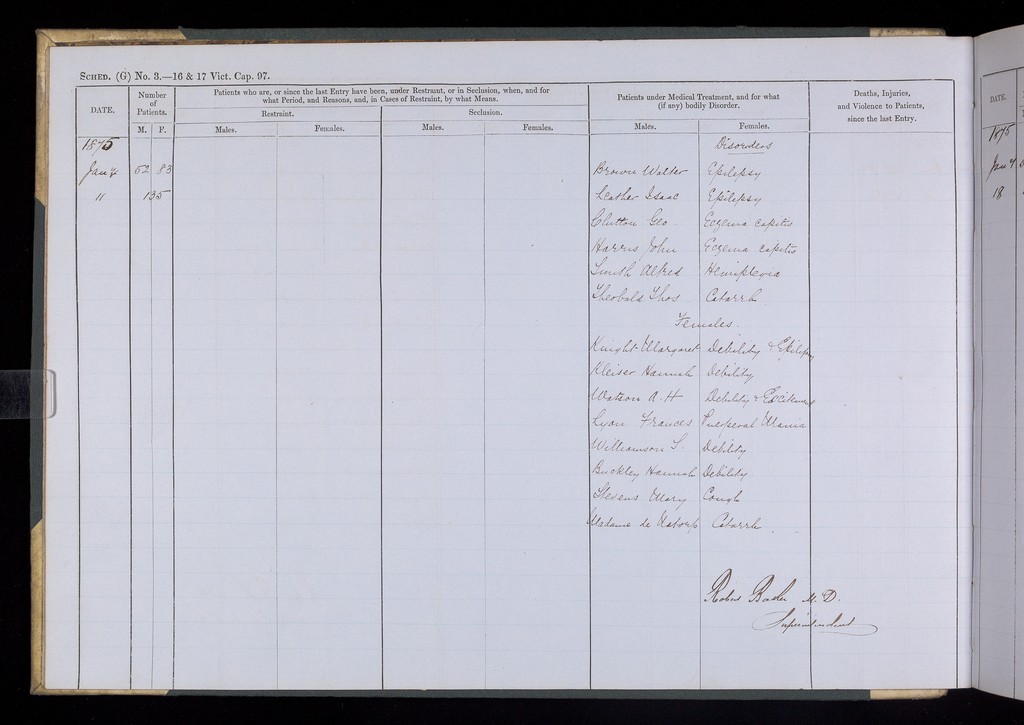 SCHED. (G) No. 3.—16 & 17 Vict. Cap. 97.
DATE.
Number of Patients.
M. F.
Patients who are, or since the last Entry have been, under Restraint, or in Seclusion, when, and for
what Period, and Reasons, and, in Cases of Restraint, by what Means.
Restraint. Seclusion.
Males. Females. Males. Females.
Patients under Medical Treatment, and for what
(if any) bodily Disorder.
Males. Females.
Deaths, Injuries,
and Violence to Patients,
since the last Entry.
1875 Disorders
Jan 4 52 83 Brown Walter Epilepsy
" 135 Leather Isaac Epilepsy
Clutton Geo Eczema capitis
Harris John Eczema capitis
Smith Alfred Hemiplegia
Theobald Thos Catarrh
Females.
Knight Margaret Debility & Epilepsy
Kleiser Hannah Debility
Watson A. H Debility & Excitement
Lyon Frances Puerperal Mania
Williamson S. Debility
Buckley Hannah Debility
Stevens Mary Cough
Madame de Catarrh
Robert M.D.
Superintendent
DATE.
1875
Jan
18